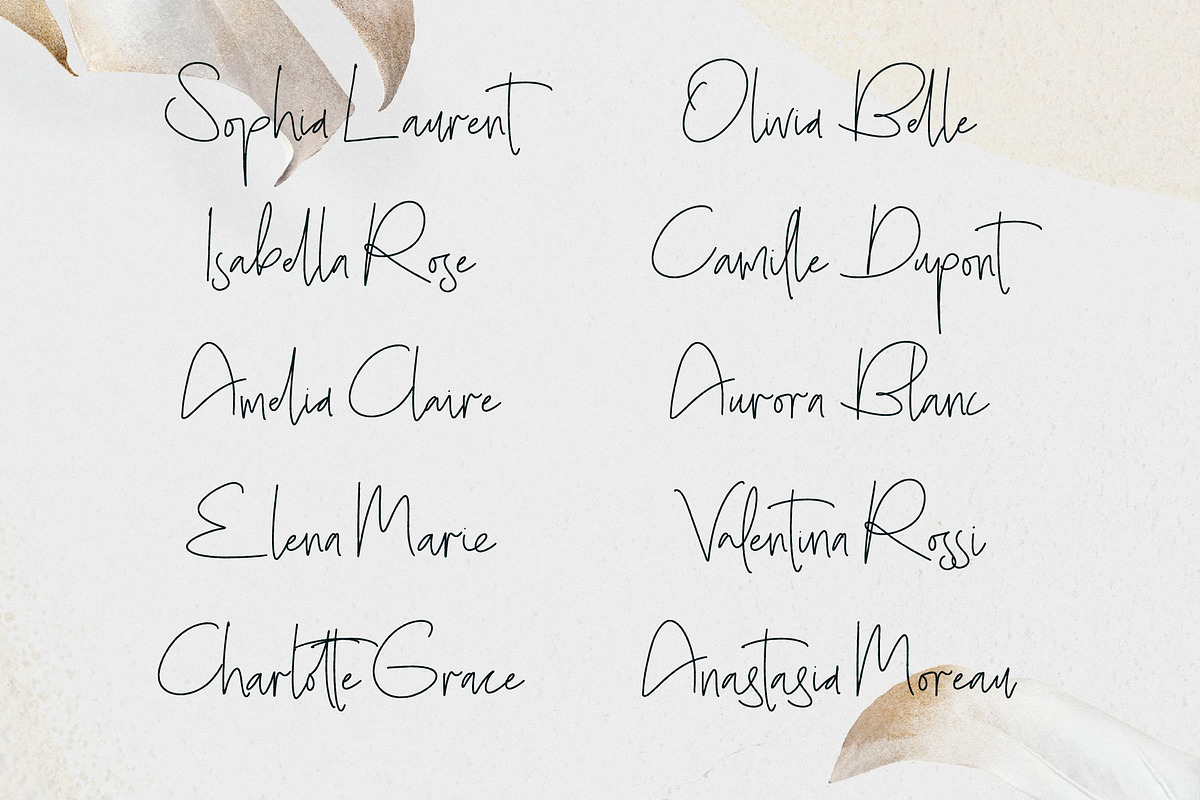 Sophia Laurent
Olivia Belle
Isabella Rose
Camille Dupont
Amelia Claire
Aurora Blanc
Elena Marie
Valentina Rossi
Charlotte Grace
Anastasia Moreau